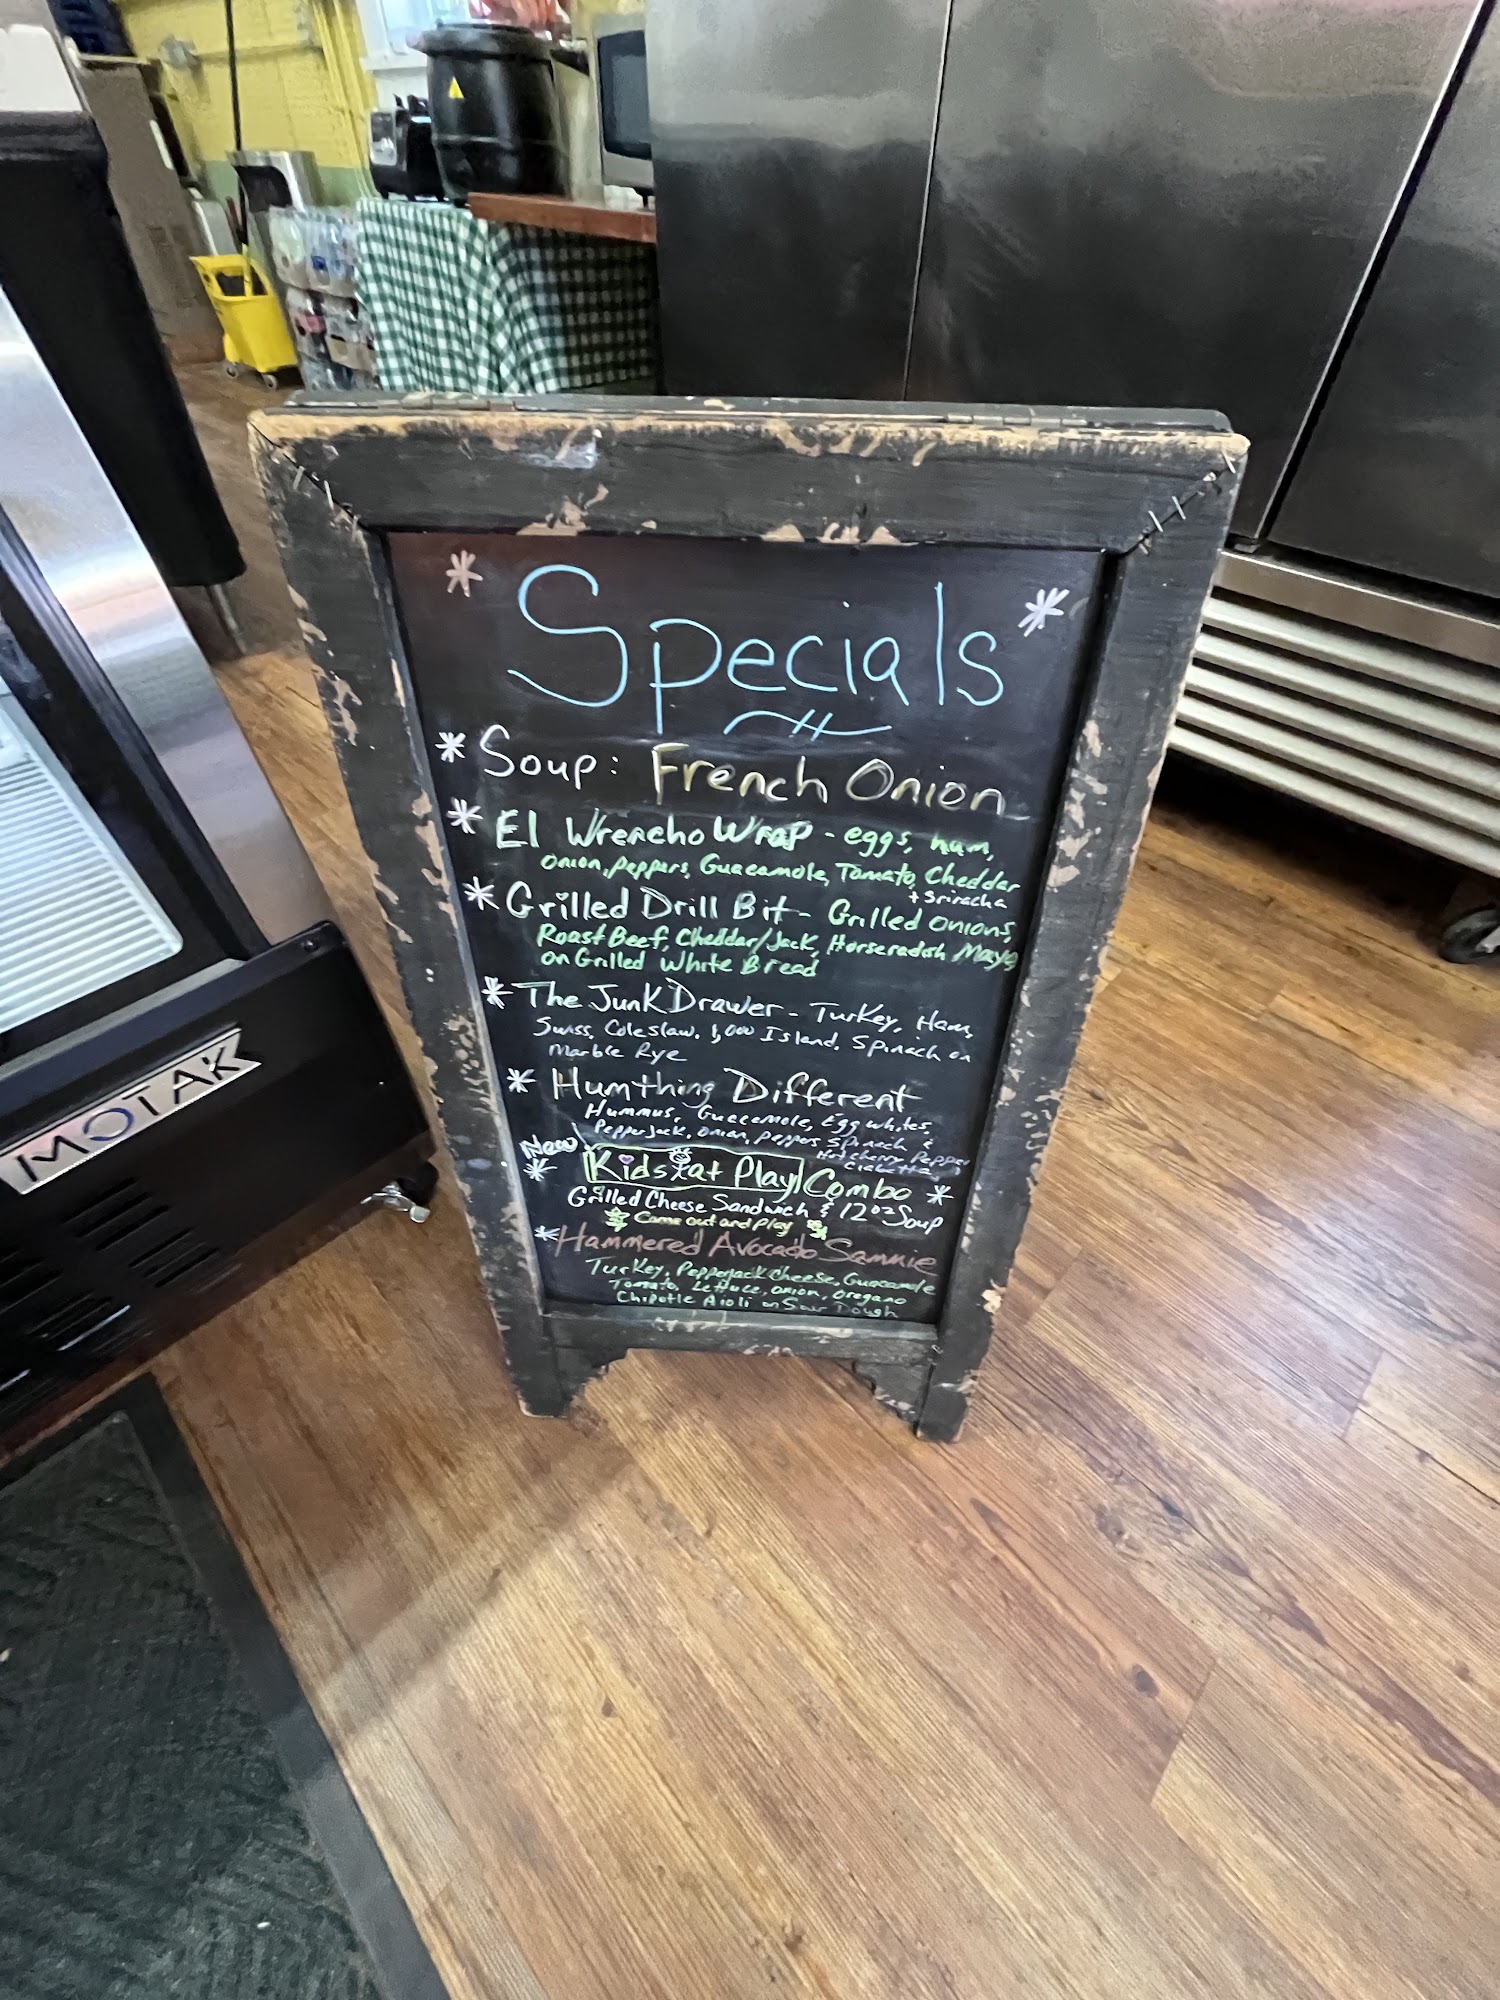 * Specials *
* Soup: French Onion
* El Wrencho Wrap - eggs, ham,
Onion, Peppers, Guacamole, Tomato, Cheddar
+ Sriracha
* Grilled Drill Bit - Grilled onions,
Roast Beef, Cheddar/Jack, Horseradish Mayo
on Grilled White Bread
* The Junk Drawer - Turkey, Ham,
Swiss, Coleslaw, 1,000 Island, Spinach on
Marble Rye
* Humthing Different
Hummus, Guacamole, Egg whites,
Pepperjack, onion, peppers, Spinach &
Hot Cherry Pepper
Ciabatta
New
* Kids at Play Combo *
Grilled Cheese Sandwich & 12oz Soup
Come out and Play
* Hammered Avocado Sammie
Turkey, Pepperjack Cheese, Guacamole
Tomato, Lettuce, onion, oregano
Chipotle Aioli on Sour Dough
MOTAK